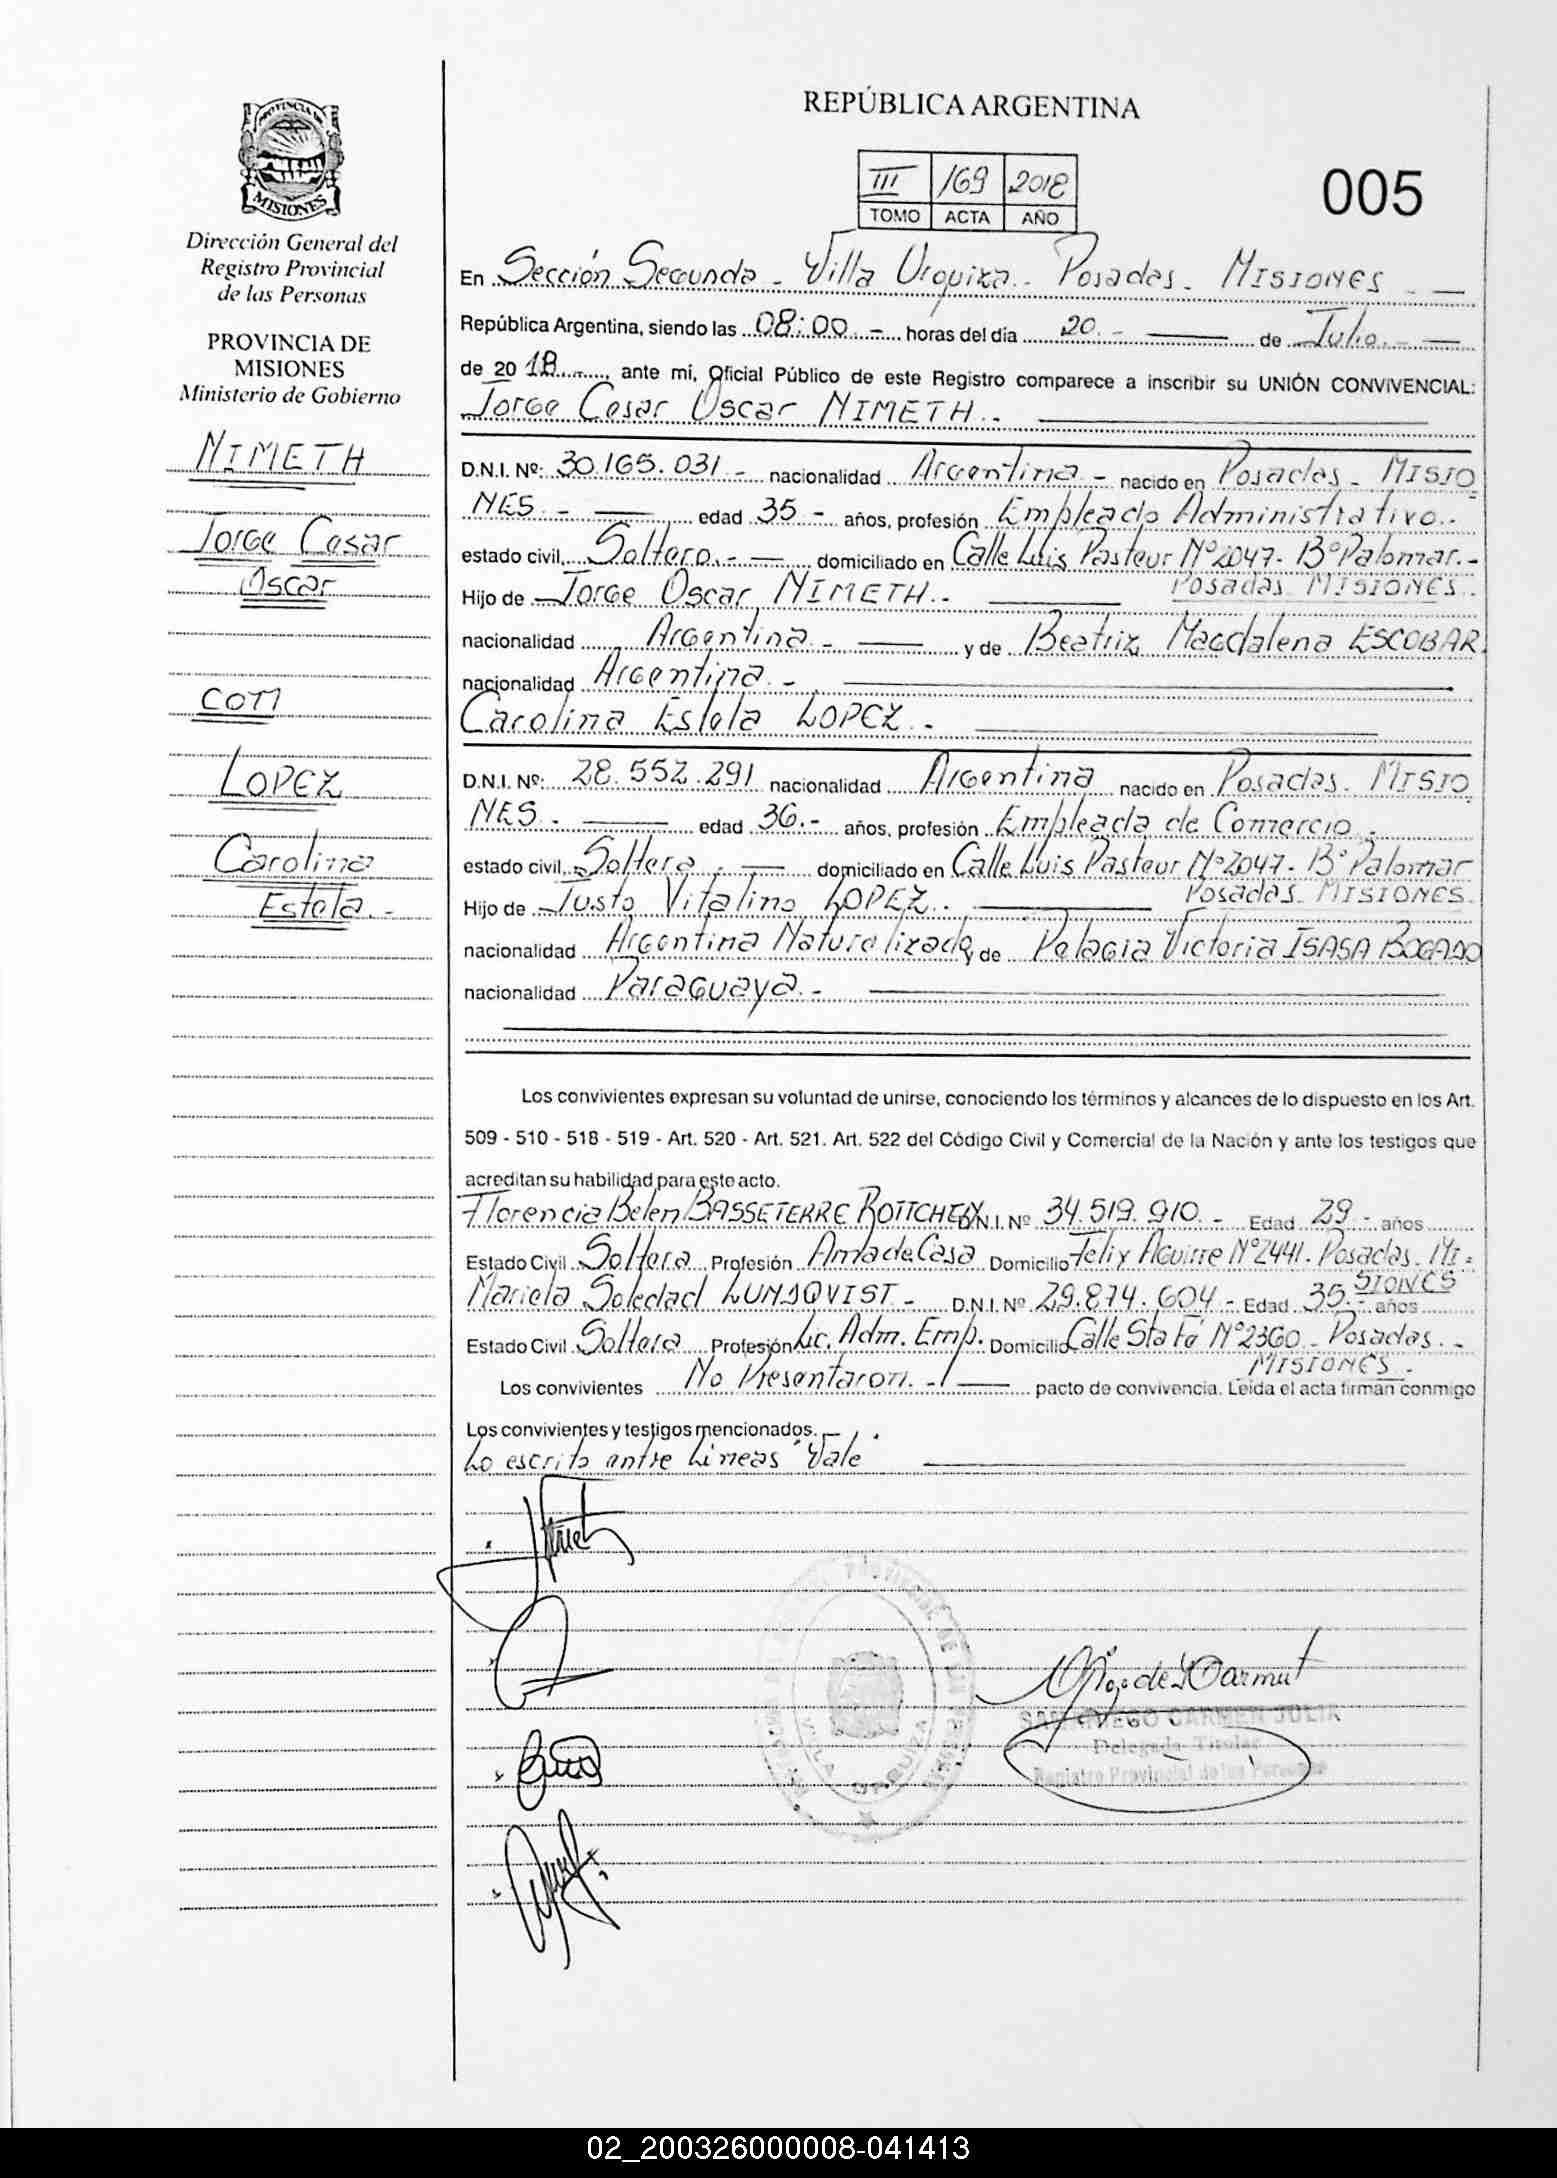 PROVINCIA DE
MISIONES
Dirección General del
Registro Provincial
de las Personas
PROVINCIA DE
MISIONES
Ministerio de Gobierno
NIMETH
Jorge Cesar
Oscar
con
LOPEZ
Carolina
Estela.-
REPÚBLICA ARGENTINA
III 169 2018
TOMO ACTA AÑO
005
En Sección Segunda - Villa Urquiza.- Posadas - MISIONES - —
República Argentina, siendo las 08:00 - horas del día 20.- — de Julio.- —
de 2018 - , ante mi, Oficial Público de este Registro comparece a inscribir su UNIÓN CONVIVENCIAL:
Jorge Cesar Oscar NIMETH.-
D.N.I. Nº: 30.165.031 - nacionalidad Argentina - nacido en Posadas - MISIO
NES - — edad 35 - años, profesión Empleado Administrativo.-
estado civil Soltero.- — domiciliado en Calle Luis Pasteur Nº2047- Bº Palomar.-
Posadas MISIONES.
Hijo de Jorge Oscar NIMETH.- —
nacionalidad Argentina.- — y de Beatriz Magdalena ESCOBAR
nacionalidad Argentina.- —
Carolina Estela LOPEZ.-
D.N.I. Nº: 28.552.291 nacionalidad Argentina nacido en Posadas. MISIO
NES.- — edad 36.- años, profesión Empleada de Comercio.-
estado civil Soltera.- — domiciliado en Calle Luis Pasteur Nº2047- Bº Palomar
Posadas MISIONES.
Hijo de Justo Vitalino LOPEZ.- —
nacionalidad Argentina Naturalizado y de Pelagia Victoria ISASA BOGADO
nacionalidad Paraguaya.- —
Los convivientes expresan su voluntad de unirse, conociendo los términos y alcances de lo dispuesto en los Art.
509 - 510 - 518 - 519 - Art. 520 - Art. 521. Art. 522 del Código Civil y Comercial de la Nación y ante los testigos que
acreditan su habilidad para este acto.
Florencia Belen BASSETERRE ROTTCHEN D.N.I. Nº 34.519.910.- Edad 29 - años
Estado Civil Soltera Profesión Ama de Casa Domicilio Felix Aguirre Nº2441. Posadas. MI-
SIONES
Mariela Soledad LUNDQVIST - D.N.I. Nº 29.874.604 - Edad 35.- años
Estado Civil Soltera Profesión Lic. Adm. Emp. Domicilio Calle Sta Fé Nº2360 - Posadas.-
MISIONES.
Los convivientes No Presentaron.- — pacto de convivencia. Leida el acta firman conmigo
Los convivientes y testigos mencionados.
Lo escrito entre Lineas "Vale"
VILLA URQUIZA
CARMEN JULIA
Delegada Titular
Registro Provincial de las Personas
02_200326000008-041413